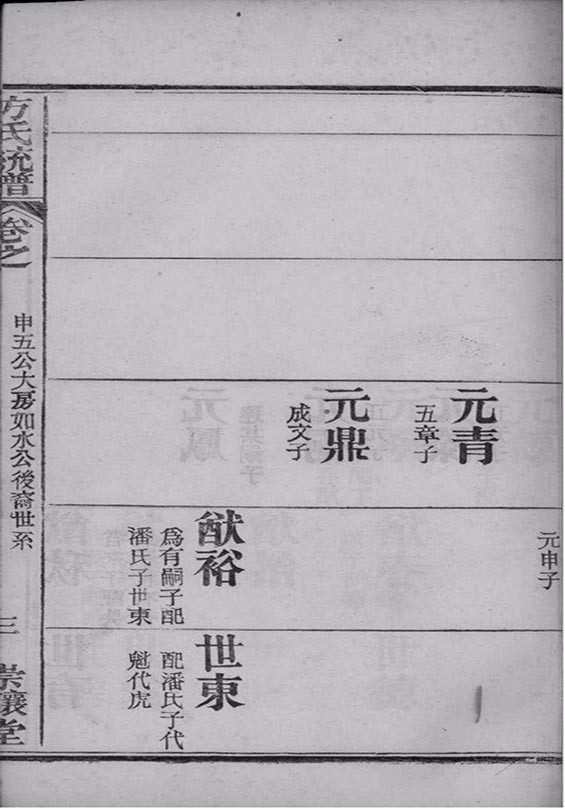 元申子
元青
五章子
元鼎
成文子
猷裕
為有嗣子配
潘氏子世東
世東
配潘氏子代
魁代虎
方氏統譜
卷之
申五公大房如水公後裔世系
三
崇讓堂